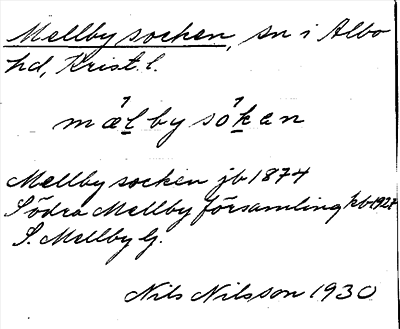 Mellby socken, sn i Albo
hd, Krist. l.
mæl by sokæn
Mellby socken jb 1874
Södra Mellby församling kb 1927
S. Mellby G.
Nils Nilsson 1930